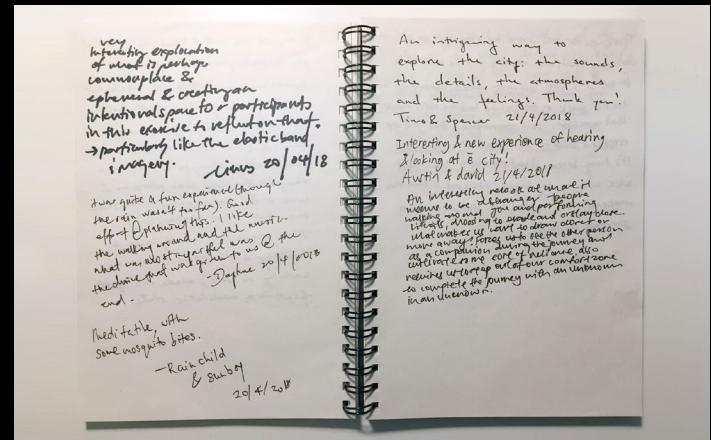 very
interesting exploration
of what is perhaps
commonplace &
ephemeral & creating an
intentional space for participants
in this exercise to reflect on that.
→ particularly like the elastic band
imagery.
Linus 20/04/18
it was quite a fun experience (though
the rain wasn't too fun). Good
effort @ planning this. I like
the walking around and the music.
what was most impactful was
the drink that was given to us @ the
end.
- Daphne 20/4/2018
Meditative, with
some mosquito bites.
- Rainchild
& Sunboy
20/4/2018
An intriguing way to
explore the city: the sounds,
the details, the atmospheres
and the feelings. Thank you!
Timo & Spencer 21/4/2018
Interesting & new experience of hearing
& looking at ē city!
Austin & david 21/4/2018
An interesting relook at what it
means to be a stranger - people
walking around you and performing
rituals, choosing to evade and or stay close.
What makes us want to draw closer or
move away? forces us to see the other person
as a companion during the journey and
cultivate some sort of reliance, also
requires us to step out of our comfort zone
to complete the journey with an unknown
in an unknown.